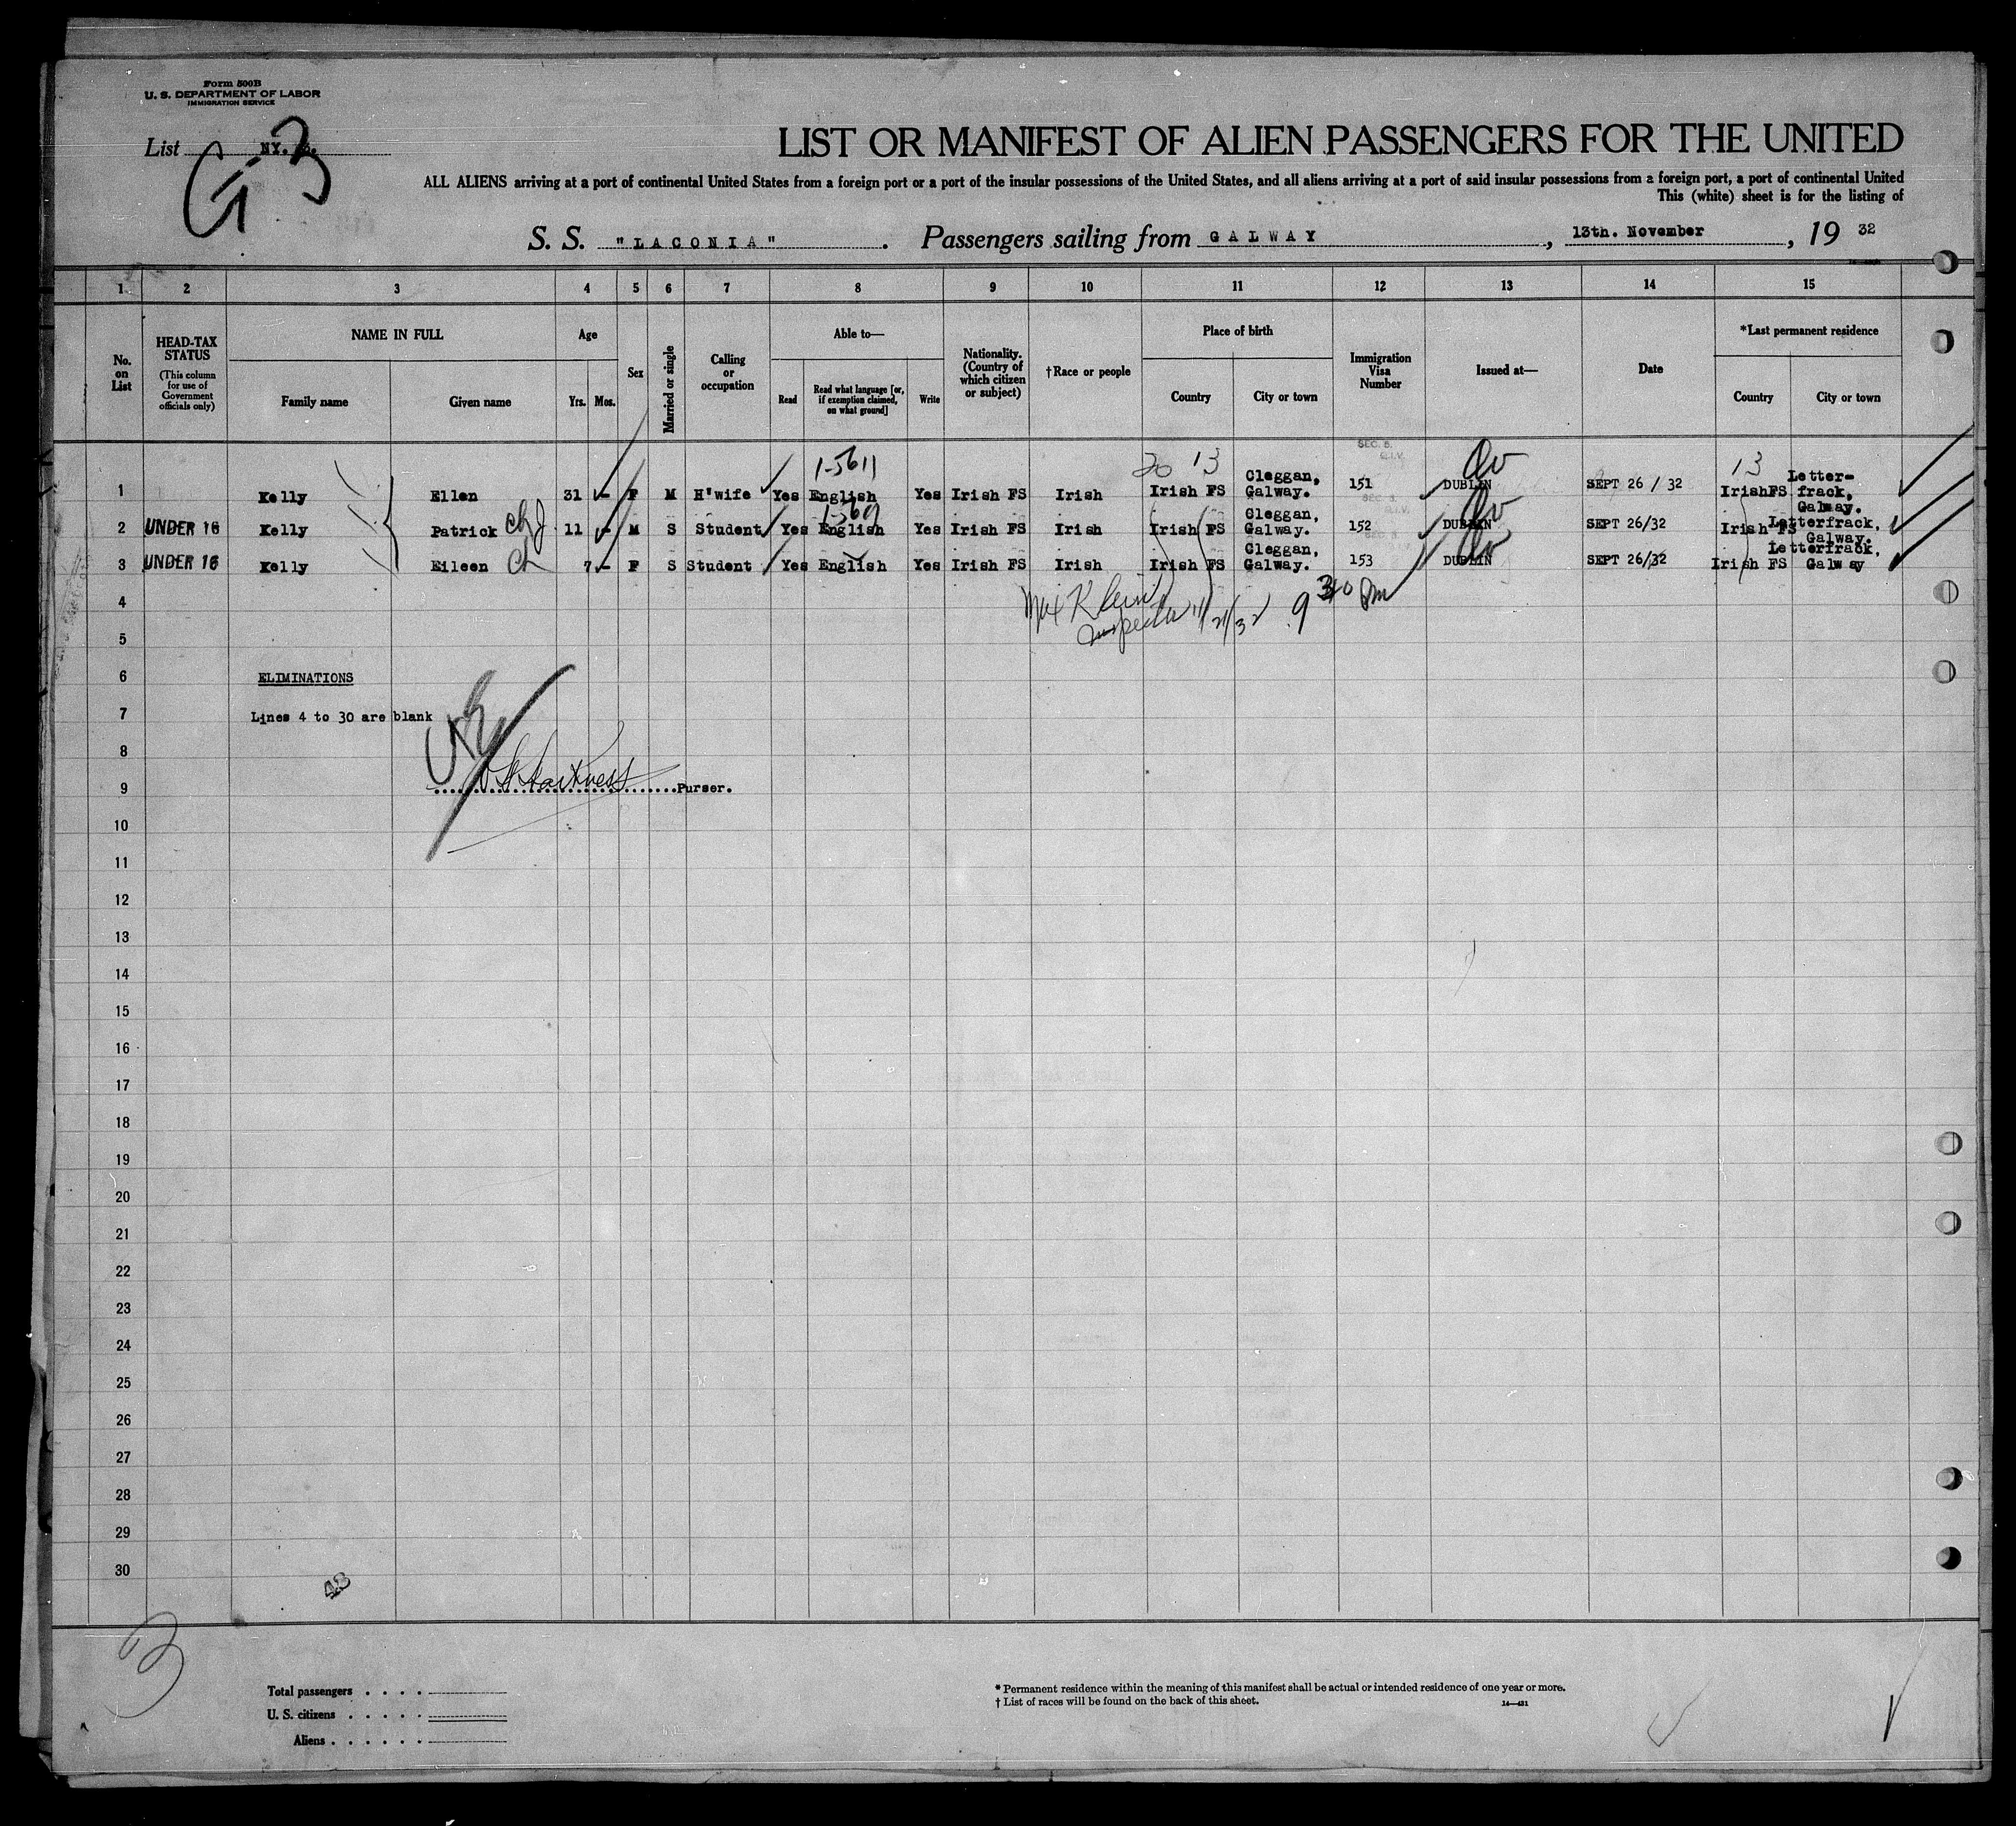 Form 500B
U. S. DEPARTMENT OF LABOR
IMMIGRATION SERVICE
List NY. 3.
G-3
LIST OR MANIFEST OF ALIEN PASSENGERS FOR THE UNITED
ALL ALIENS arriving at a port of continental United States from a foreign port or a port of the insular possessions of the United States, and all aliens arriving at a port of said insular possessions from a foreign port, a port of continental United
This (white) sheet is for the listing of
S. S. "LACONIA". Passengers sailing from GALWAY, 13th. November, 19 32
1 2 3 4 5 6 7 8 9 10 11 12 13 14 15
No. on List
HEAD-TAX STATUS (This column for use of Government officials only)
NAME IN FULL
Family name Given name
Age
Yrs. Mos.
Sex
Married or single
Calling or occupation
Able to—
Read Read what language [or, if exemption claimed, on what ground] Write
Nationality. (Country of which citizen or subject)
†Race or people
Place of birth
Country City or town
Immigration Visa Number
Issued at—
Date
*Last permanent residence
Country City or town
1-5611 20 13 SEC. 5. Q.I.V. 13
1 Kelly Ellen 31 - F M H'wife Yes English Yes Irish FS Irish Irish FS Cleggan, Galway. 151 DUBLIN SEPT 26 / 32 Irish FS Letter-frack, Galway.
2 UNDER 16 Kelly Patrick Ch 11 - M S Student Yes English Yes Irish FS Irish Irish FS Cleggan, Galway. 152 DUBLIN SEPT 26/32 Irish FS Letterfrack, Galway.
3 UNDER 16 Kelly Eileen Ch 7 - F S Student Yes English Yes Irish FS Irish Irish FS Cleggan, Galway. 153 DUBLIN SEPT 26/32 Irish FS Letterfrack, Galway
4 Klein
5 Inspector 11/21/32 9 30 Pm
6 ELIMINATIONS
7 Lines 4 to 30 are blank
8
9 Harkness Purser.
10
11
12
13
14
15
16
17
18
19
20
21
22
23
24
25
26
27
28
29
30
48
3
Total passengers . . . .
U. S. citizens . . . . .
Aliens . . . . . .
* Permanent residence within the meaning of this manifest shall be actual or intended residence of one year or more.
† List of races will be found on the back of this sheet. 14—431